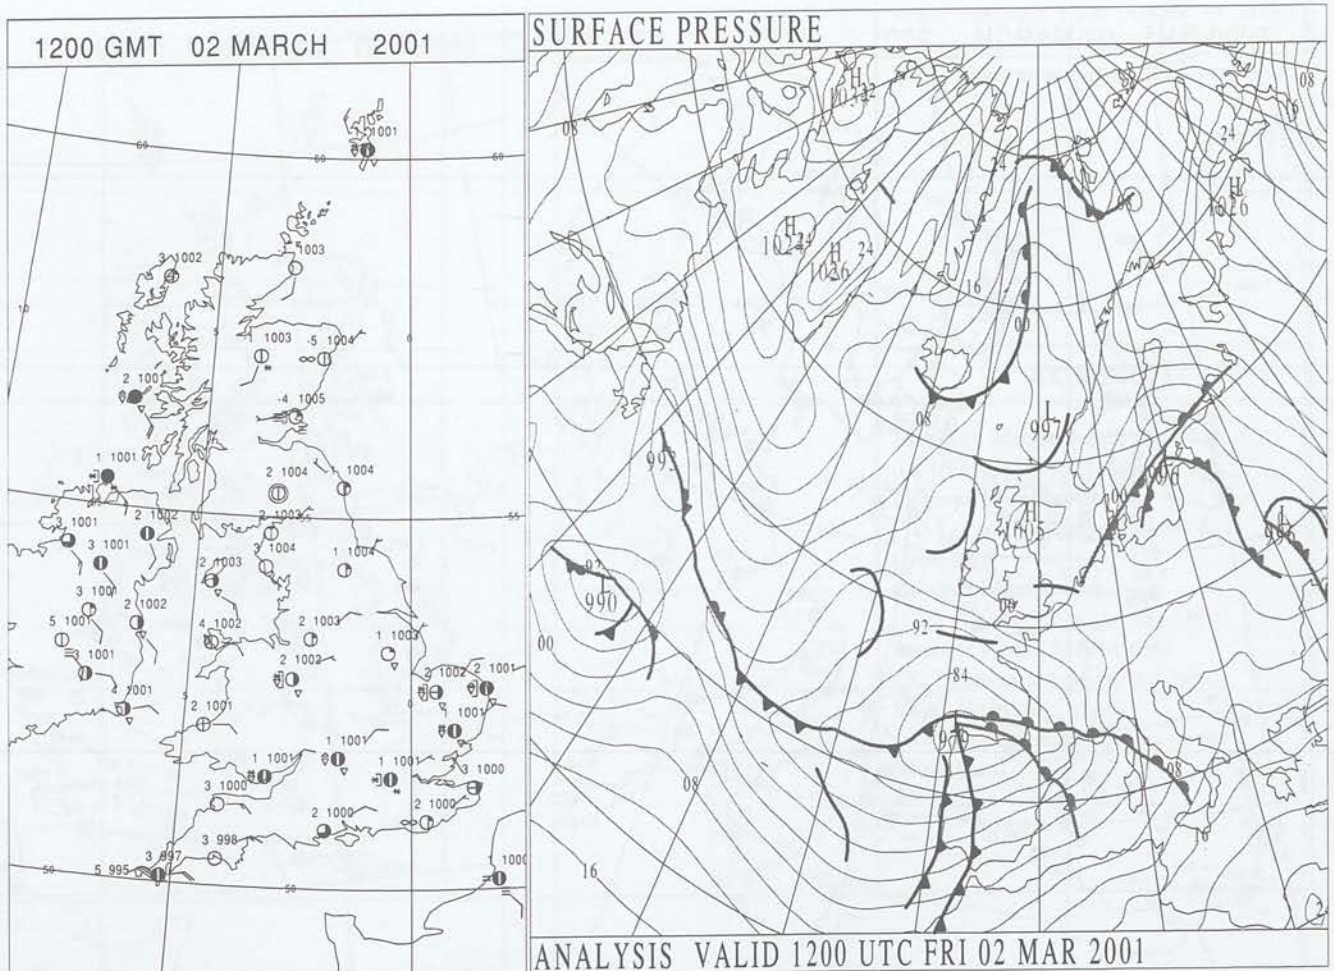 1200 GMT 02 MARCH 2001
1001
60
60
60
-1 1003
3 1002
10
5
0
-1 1003
-5 1004
2 1001
-4 1005
1 1001
2 1004
1 1004
55
55
3 1001
2 1002
2 1003
3 1001
3 1004
1 1004
2 1003
3 1001
2 1002
5 1001
4 1002
2 1003
1 1003
3 1001
2 1002
2 1002
2 1001
4 1001
5
0
2 1001
1 1001
1 1001
1 1001
1 1001
3 1000
3 1000
2 1000
2 1000
3 998
3 997
5 995
50
50
1 1000
SURFACE PRESSURE
H
08
08
16
24
24
H
1026
H
1024
24
H
1026
24
16
00
08
L
997
993
H
1005
L
92
990
00
00
92
84
970
08
08
16
16
ANALYSIS VALID 1200 UTC FRI 02 MAR 2001